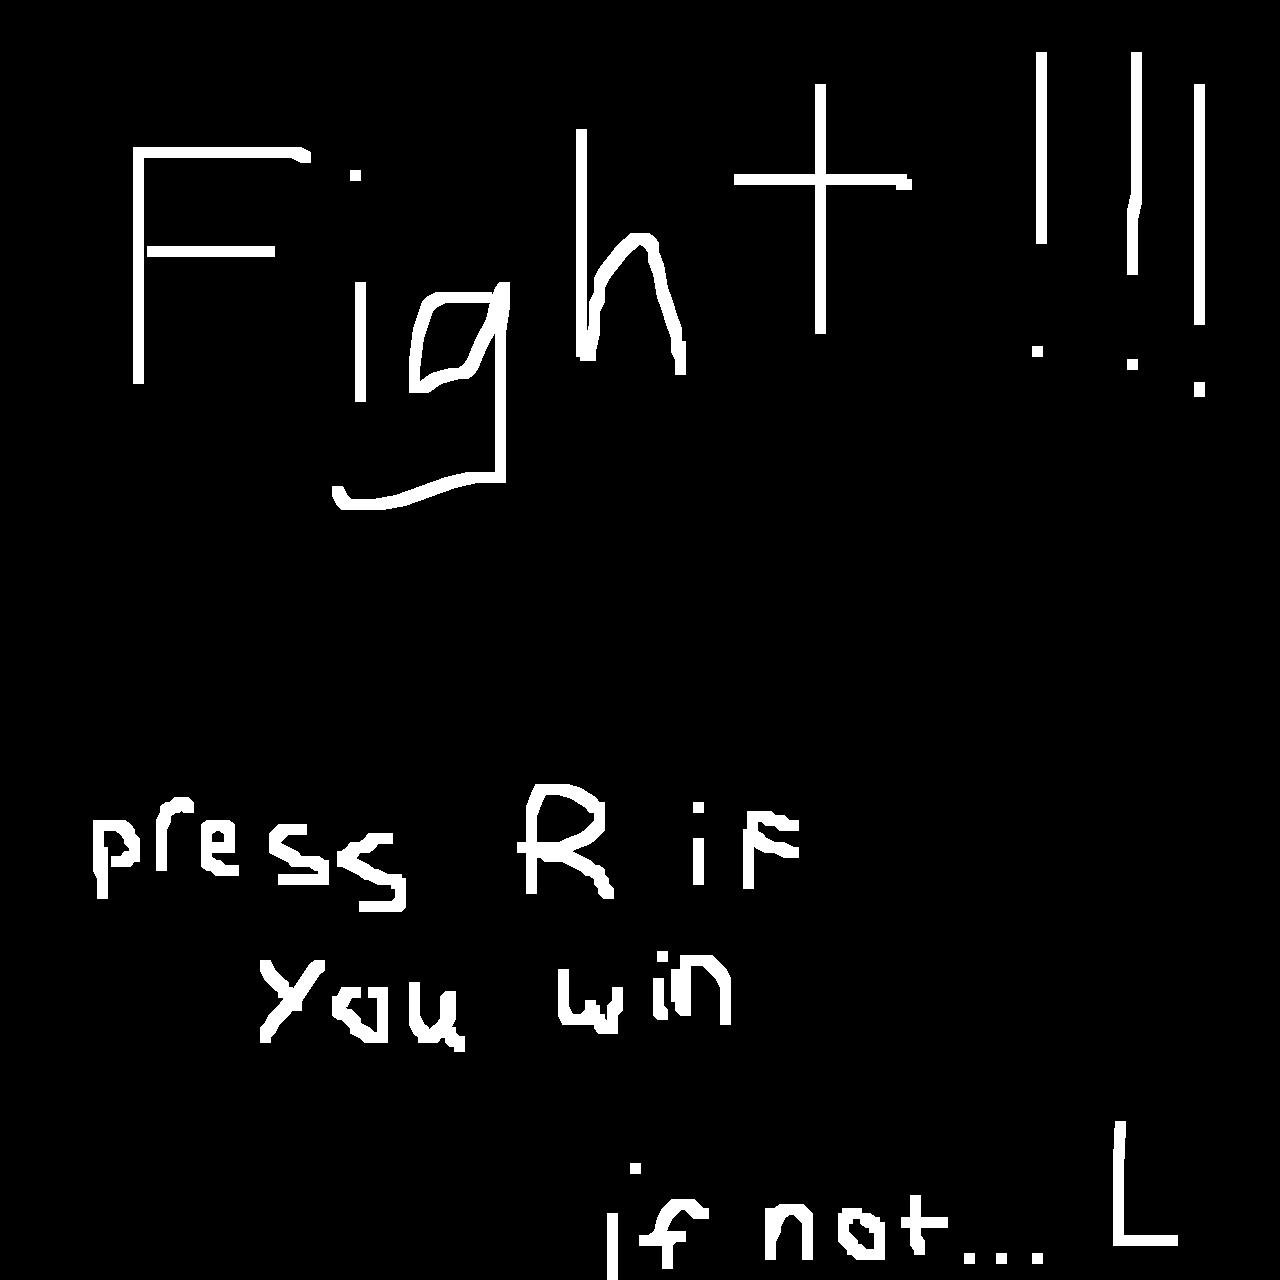 Fight!!!
press R if
you win
if not... L